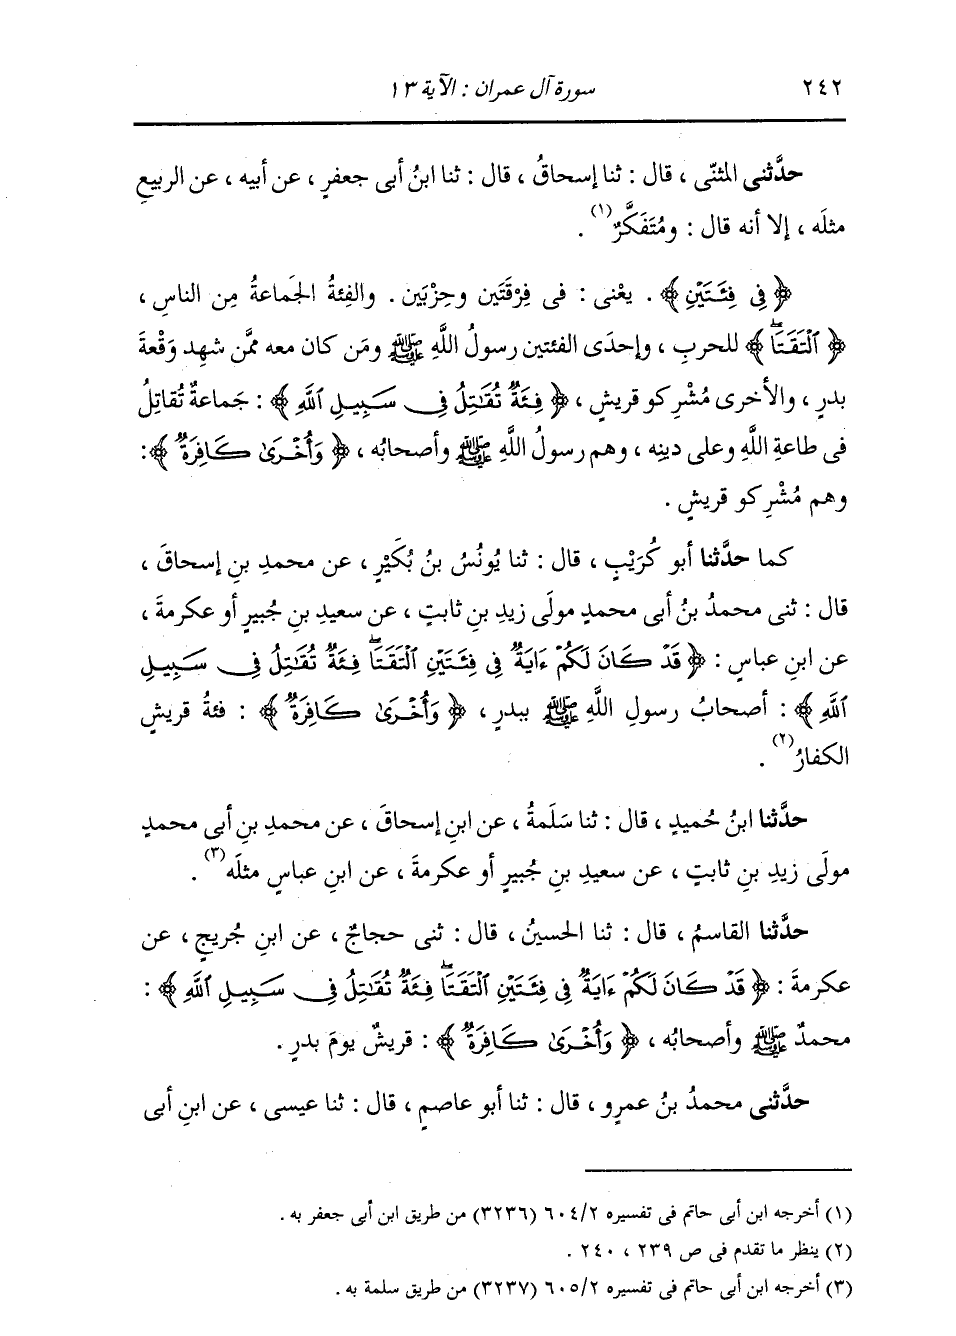 ٢٤٢ سورة آل عمران : الآية ١٣
حدَّثنى المثنّى ، قال : ثنا إسحاقُ ، قال : ثنا ابنُ أبى جعفرٍ ، عن أبيه ، عن الربيعِ
مثلَه ، إلا أنه قال : ومُتَفَكَّرٌ(١) .
﴿ فِي فِئَتَيْنِ ﴾ . يعْنى : فى فِرْقَتَين وحِزْبَين . والفِئةُ الجَماعةُ مِن الناسِ ،
﴿ ٱلْتَقَتَاۖ ﴾ للحربِ ، وإحدَى الفئتين رسولُ اللَّهِ ﷺ ومَن كان معه ممَّن شهِد وَقْعةَ
بدرٍ ، والأخرى مُشْرِكو قريشٍ ، ﴿ فِئَةٌ تُقَٰتِلُ فِى سَبِيلِ ٱللَّهِ ﴾ : جَماعةٌ تُقاتِلُ
فى طاعةِ اللَّهِ وعلى دينِه ، وهم رسولُ اللَّهِ ﷺ وأصحابُه ، ﴿ وَأُخْرَىٰ كَافِرَةٌ ﴾ :
وهم مُشْرِكو قريشٍ .
كما حدَّثنا أبو كُرَيْبٍ ، قال : ثنا يُونُسُ بنُ بُكَيْرٍ ، عن محمدِ بنِ إسحاقَ ،
قال : ثنى محمدُ بنُ أبى محمدٍ مولَى زيدِ بنِ ثابتٍ ، عن سعيدِ بنِ جُبيرٍ أو عكرمةَ ،
عن ابنِ عباسٍ : ﴿ قَدْ كَانَ لَكُمْ ءَايَةٌ فِي فِئَتَيْنِ ٱلْتَقَتَاۖ فِئَةٌ تُقَٰتِلُ فِى سَبِيلِ
ٱللَّهِ ﴾ : أصحابُ رسولِ اللَّهِ ﷺ ببدرٍ ، ﴿ وَأُخْرَىٰ كَافِرَةٌ ﴾ : فئةُ قريشٍ
الكفارُ(٢) .
حدَّثنا ابنُ حُميدٍ ، قال : ثنا سَلَمةُ ، عن ابنِ إسحاقَ ، عن محمدِ بنِ أبى محمدٍ
مولَى زيدِ بنِ ثابتٍ ، عن سعيدِ بنِ جُبيرٍ أو عكرمةَ ، عن ابنِ عباسٍ مثلَه(٣) .
حدَّثنا القاسمُ ، قال : ثنا الحسينُ ، قال : ثنى حجاجٌ ، عن ابنِ جُريجٍ ، عن
عكرمةَ : ﴿ قَدْ كَانَ لَكُمْ ءَايَةٌ فِي فِئَتَيْنِ ٱلْتَقَتَاۖ فِئَةٌ تُقَٰتِلُ فِى سَبِيلِ ٱللَّهِ ﴾ :
محمدٌ ﷺ وأصحابُه ، ﴿ وَأُخْرَىٰ كَافِرَةٌ ﴾ : قريشٌ يومَ بدرٍ .
حدَّثنى محمدُ بنُ عمرٍو ، قال : ثنا أبو عاصمٍ ، قال : ثنا عيسى ، عن ابنِ أبى
(١) أخرجه ابن أبى حاتم فى تفسيره ٦٠٤/٢ (٣٢٣٦) من طريق ابن أبى جعفر به .
(٢) ينظر ما تقدم فى ص ٢٣٩ ، ٢٤٠ .
(٣) أخرجه ابن أبى حاتم فى تفسيره ٦٠٥/٢ (٣٢٣٧) من طريق سلمة به .